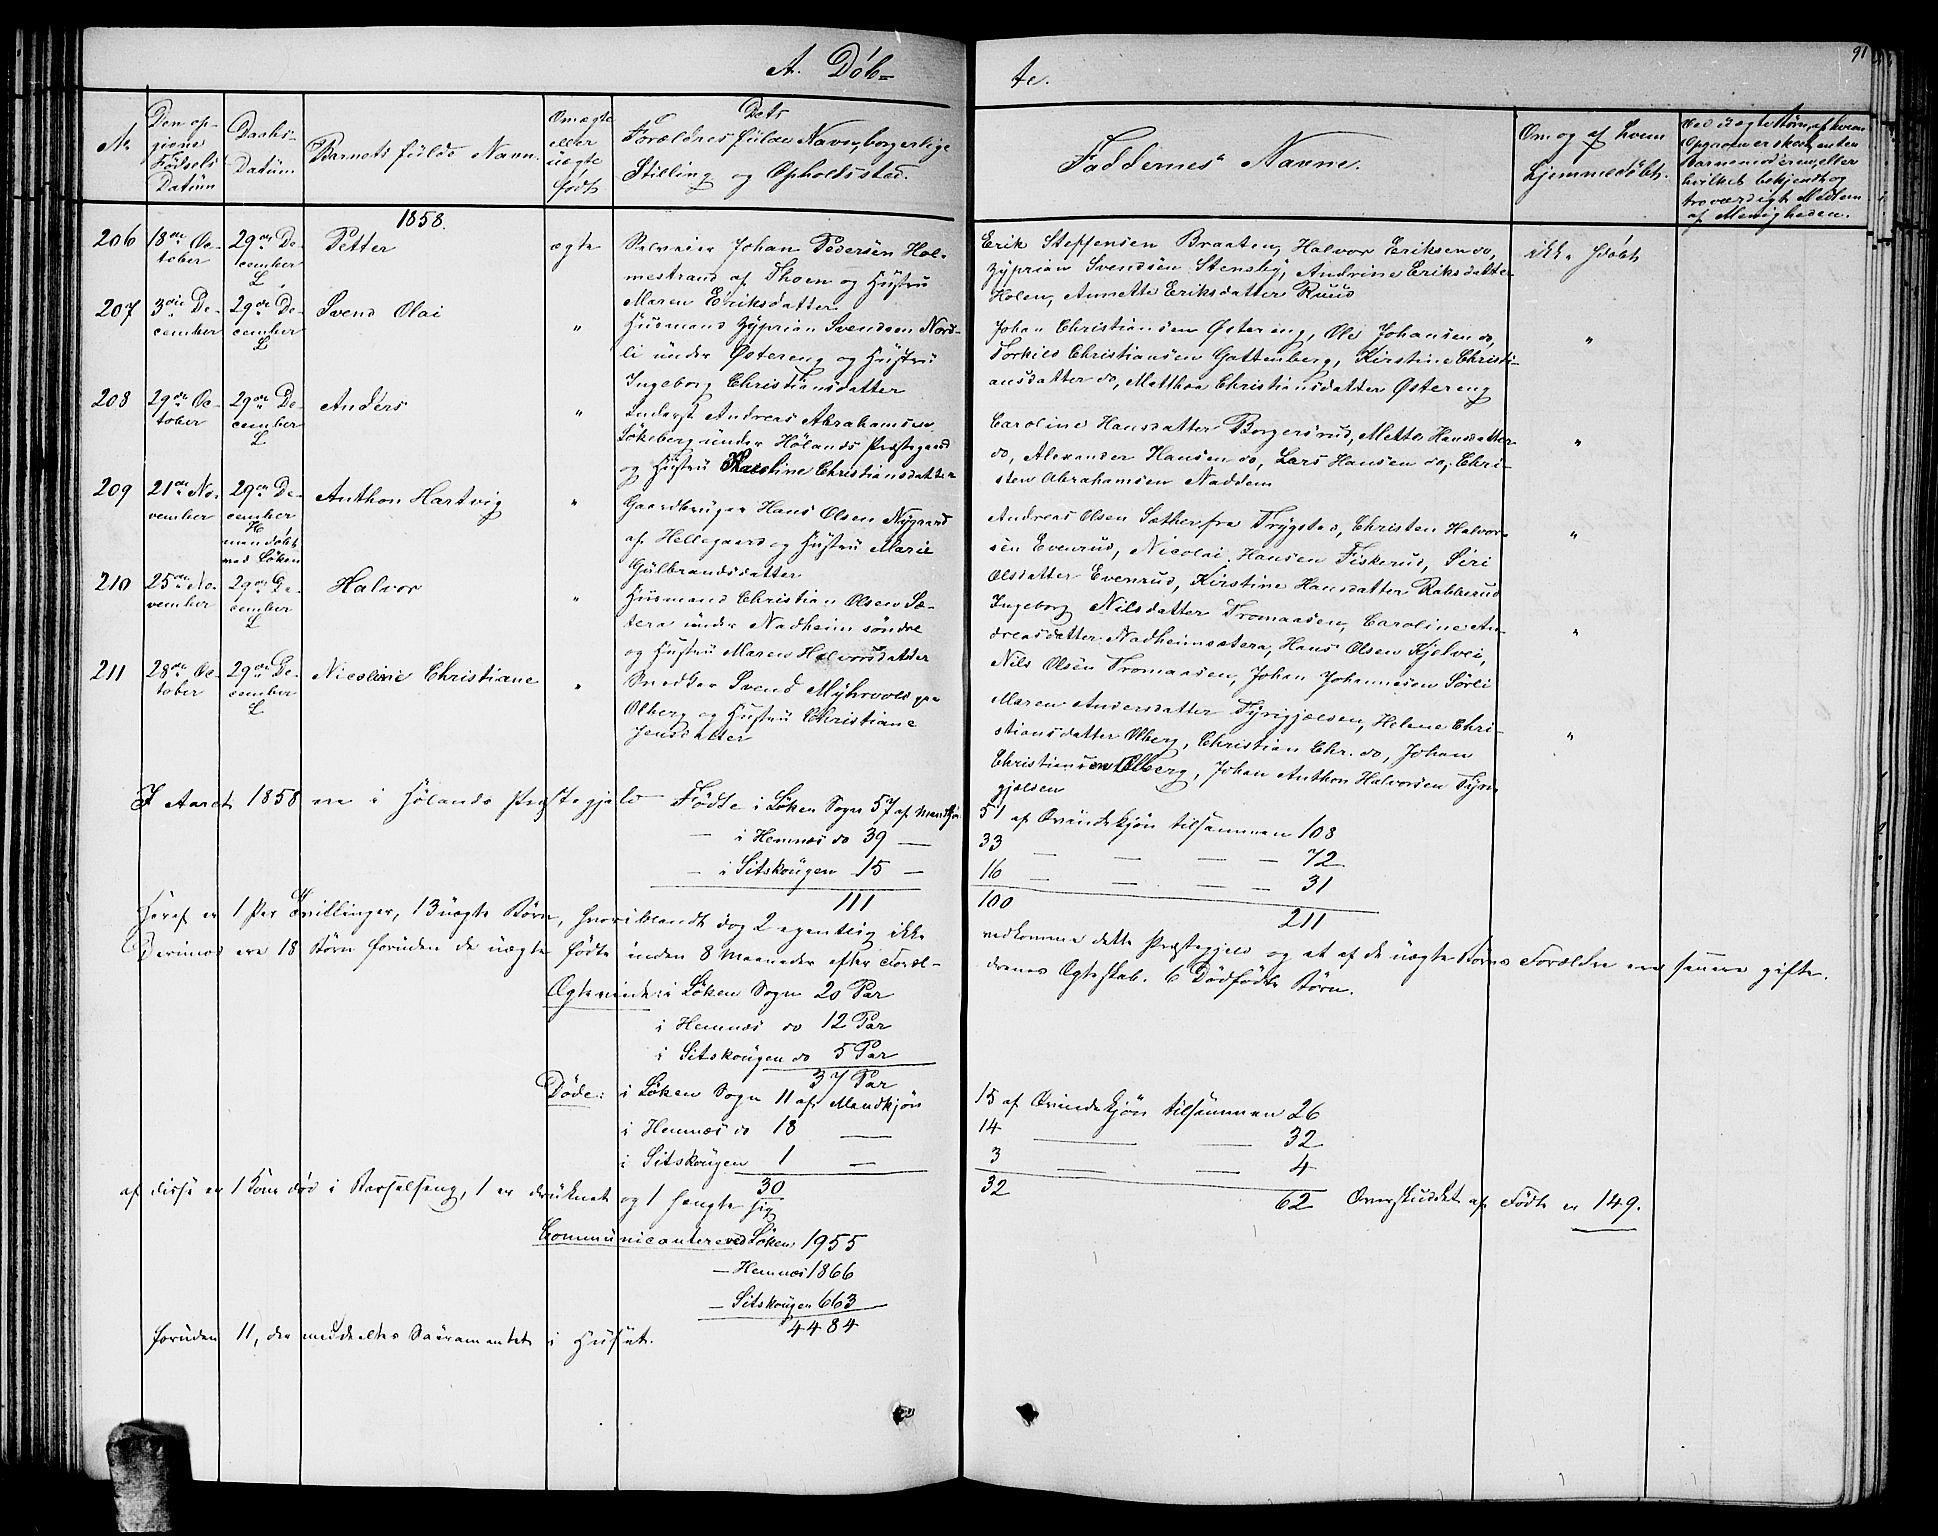 91
A. Døb-
te.
No
Den op-
givne
Fødsels
Datum
Daabs-
Datum
Barnets fulde Navn.
Om ægte
eller
uægte
født
Dets
Forældres fulde Navn, borgerlige
Stilling og Opholdssted.
Faddernes Navne.
Om og af hvem
hjemmedøbt.
Ved uægte Børn, af hvem
Opgaven er skeet, enten
Barnemoderen, eller
hvilket bekjendt og
troværdigt Medlem
af Menigheden.
1858.
206 18de Oc-
tober
29de De-
cember
L
Petter
ægte
Johan Pedersen Hol-
mestrand af Thoen og Hustru
Maren Eriksdatter
Erik Steffensen Braaten, Halvor Eriksen do,
Zyprian Svendsen Stensby, Andrine Eriksdatter
Holen, Annette Eriksdatter Ruud
ikke hdøbt
207 3die De-
cember
29de De-
cember
L
Svend Olai
"
Husmand Zyprian Svendsen Nord-
li under Østereng og Hustru
Ingeborg Christiansdatter
Johan Christiansen Østereng, Ole Johansen do,
Torkild Christiansen Gottenberg, Kirstine Christi-
ansdatter do, Matthea Christiansdatter Østereng
"
208 29de Oc-
tober
29de De-
cember
L
Anders
"
Inderst Andreas Abrahamsen
Løkeberg under Hølands Præstegaard
og Hustru Karoline Christiansdatter
Caroline Hansdatter Borgersrud, Mette Hansdatter
do, Alexander Hansen do, Lars Hansen do, Chri-
sten Abrahamsen Naddem
"
209 21de No-
vember
29de De-
cember
H
mandøbt
ved Løken
Anthon Hartvig
"
Gaardbruger Hans Olsen Nygaard
af Hellegaard og Hustru Marie
Gulbrandsdatter
Andreas Olsen Sæther fra Trygstad, Christen Halvor-
sen Evenrud, Nicolai Hansen Fiskerud, Siri
Olsdatter Evenrud, Kirstine Hansdatter Rakkerud
"
210 25de No-
vember
29de De-
cember
L
Halvor
"
Husmand Christian Olsen Sæ-
tera under Nadheim søndre
og Hustru Maren Halvorsdatter
Ingeborg Nilsdatter Tromaasen, Caroline An-
dreasdatter Nadheimsætera, Hans Olsen Kjelvei,
Nils Olsen Tromaasen, Johan Johannesen Sørli
"
211 28de Oc-
tober
29de De-
cember
L
Nicoline Christiane
"
Snedker Svend Myhrvold paa
Olberg og Hustru Christiane
Jensdatter
Maren Andersdatter Tyrigjælsen, Helene Chri-
stiansdatter Olberg, Christian Chr. do, Johan
Christiansen Olberg, Johan Anthon Halvorsen Tyri-
gjælsen
"
I Aaret 1858 ere i Hølands Præstegjeld Fødte i Løken Sogn 57 af Mandkjøn 51 af Qvindekjøn tilsammen 108
— i Hemnæs do 39 — 33 — — — — 72
— i Sitskougen 15 — 16 — — — — 31
111 100 211
Heraf er 1 Par Tvillinger, 13 uægte Børn, hvoriblandt dog 2 egentlig ikke vedkomme dette Præstegjeld og at af de uægte Børns Forældre ere senere gifte.
Derimod ere 18 Børn foruden de uægte fødte inden 8 Maaneder efter Foræl-
drenes Ægteskab. 6 Dødfødte Børn.
Ægteviede: i Løken Sogn 20 Par
i Hemnæs do 12 Par
i Sitskougen do 5 Par
37 Par
Døde: i Løken Sogn 11 af Mandkjøn 15 af Qvindekjøn tilsammen 26
i Hemnæs do 18 — 14 — — 32
i Sitskougen 1 — 3 — — 4
30 32 62 Overskuddet af Fødte er 149.
af disse er 1 Kone død i Barselseng, 1 er druknet og 1 hængte sig
Communicantere ved Løken 1955
— Hemnæs 1866
— Sitskougen 663
4484
foruden 11, der meddeeltes Sacramentet i Huset.